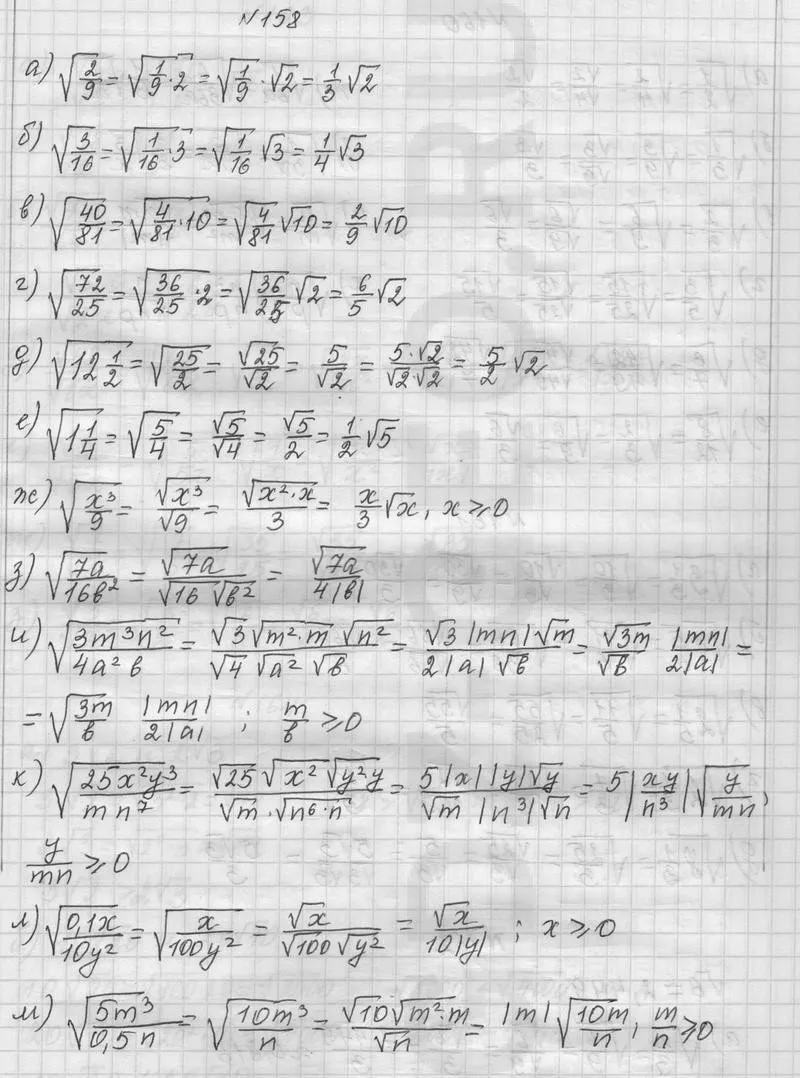 №158
а) √(2/9) = √(1/9 · 2) = √(1/9) · √2 = 1/3 √2
б) √(3/16) = √(1/16 · 3) = √(1/16) √3 = 1/4 √3
в) √(40/81) = √(4/81 · 10) = √(4/81) √10 = 2/9 √10
г) √(72/25) = √(36/25 · 2) = √(36/25) √2 = 6/5 √2
д) √(12 1/2) = √(25/2) = √25/√2 = 5/√2 = (5·√2)/(√2·√2) = 5/2 √2
е) √(1 1/4) = √(5/4) = √5/√4 = √5/2 = 1/2 √5
ж) √(x³/9) = √(x³)/√9 = √(x²·x)/3 = x/3 √x, x ⩾ 0
з) √(7a/(16в²)) = √(7a)/(√16 √(в²)) = √(7a)/(4|в|)
и) √(3m³n²/(4a²в)) = (√3 √(m²·m) √(n²))/(√4 √(a²) √в) = (√3 |mn| √m)/(2|a| √в) = √(3m)/√в |mn|/(2|a|) =
= √(3m/в) |mn|/(2|a|) ; m/в ⩾ 0
к) √(25x²y³/(mn⁷)) = (√25 √(x²) √(y²y))/(√m · √(n⁶·n)) = (5|x||y|√y)/(√m |n³|√n) = 5|xy/n³| √(y/(mn)),
y/(mn) ⩾ 0
л) √(0,1x/(10y²)) = √(x/(100y²)) = √x/(√100 √(y²)) = √x/(10|y|) ; x ⩾ 0
м) √(5m³/(0,5n)) = √(10m³/n) = (√10 √(m²·m))/√n = |m| √(10m/n), m/n ⩾ 0